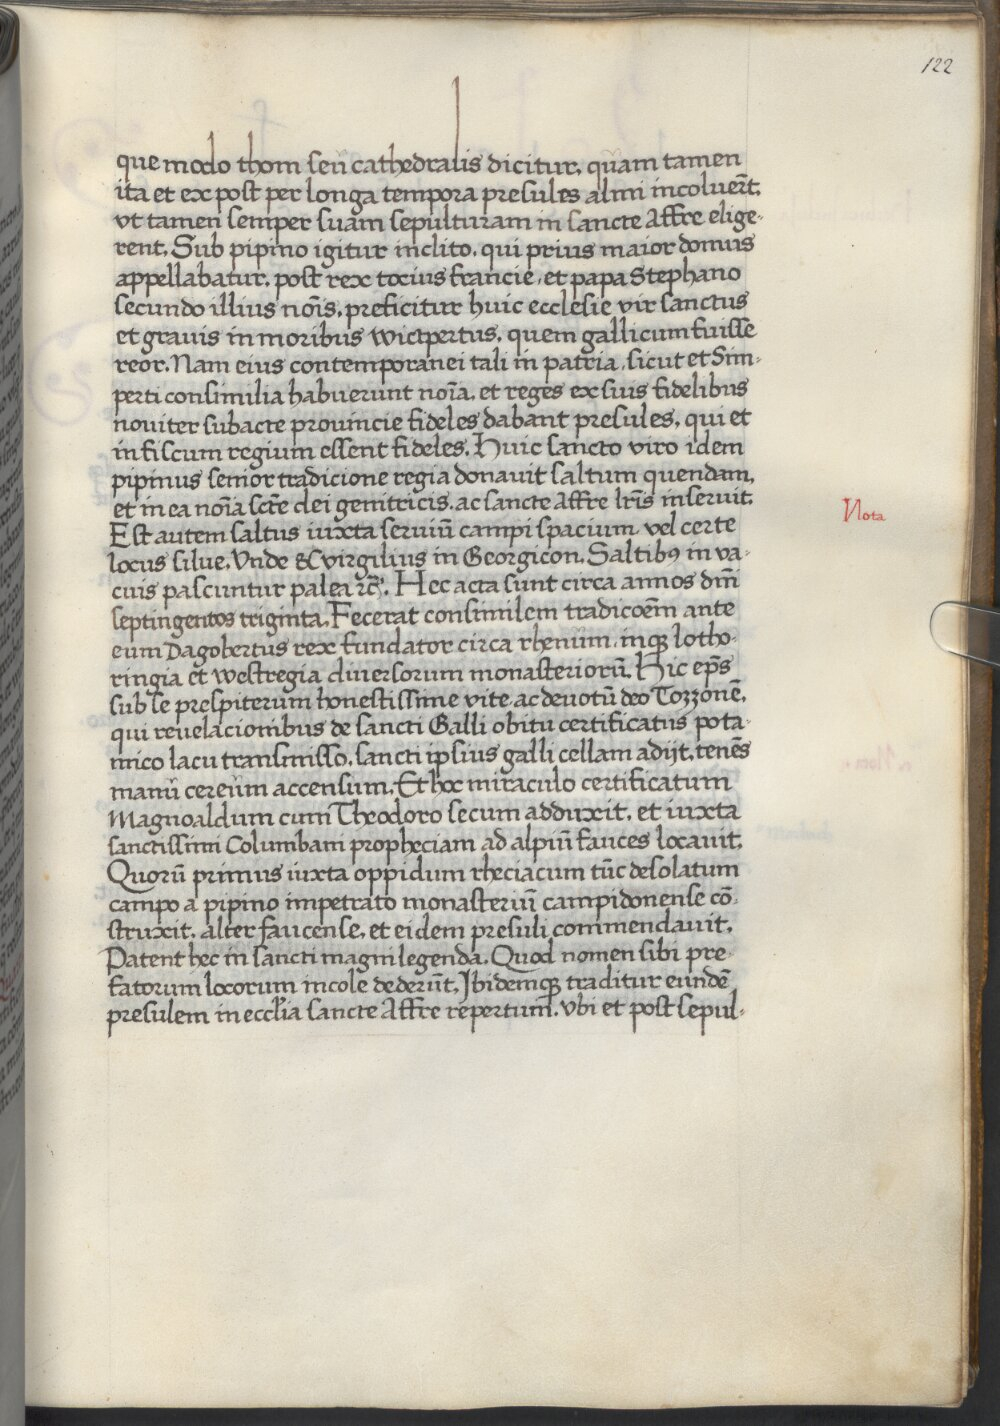 122
que modo thom seu̅ cathedralis dicitur, quam tamen
ita et ex post per longa tempora presules almi incoluer̅t,
vt tamen semper suam sepulturam in sancte Affre elige-
rent, Sub pipino igitur inclito, qui prius maior domus
appellabatur, post rex tocius francie, et papa Stephano
secundo illius no̅is, preficitur huic ecclesie vir sanctus
et grauis in moribus wictpertus, quem gallicum fuisse
reor. Nam eius contemporanei tali in patria, sicut et Sim-
perti consimilia habuerunt no̅ia, et reges ex suis fidelibus
nouiter subacte prouincie fideles dabant presules, qui et
in fiscum regium essent fideles. Huic sancto viro idem
pipinus senior tradicione regia donauit saltum quendam,
et in ea no̅ia sct̅e dei genitricis, ac sancte Affre lr̅is inseruit.
Nota
Est autem saltus iuxta seruiu̅ campi spacium vel certe
locus silue, Vnde & virgilius in Georgicon, Saltibꝫ in va-
cuis pascuntur palea ⁊c̅. Hec acta sunt circa annos dn̅i
septingentos triginta, Fecerat consimilem tradico̅em ante
eum Dagobertus rex fundator circa rhenum, inqꝫ lotho-
ringia et westregia diuersorum monasterioru̅. Hic ep̅s
sub se prespiterum honestissime vite, ac deuotu̅ deo Tozzone̅,
qui reuelacionibus de sancti Galli obitu certificatus pota-
mico lacu transmisso, sancti ipsius galli cellam adijt, tene̅s
manu̅ cereum accensum, Et hoc miraculo certificatum
Magnoaldum cum Theodoro secum adduxit, et iuxta
sanctissimi Columbani propheciam ad alpiu̅ fauces locauit,
Quoru̅ primus iuxta oppidum rheciacum tu̅c desolatum
campo a pipino impetrato monasteriu̅ campidonense co̅-
struxit, alter faucense, et eidem presuli commendauit,
Patent hec in sancti magni legenda, Quod nomen sibi pre-
fatorum locorum incole dederu̅t, Ibidemqꝫ traditur eunde̅
presulem in eccl̅ia sancte Affre repertum, vbi et post sepul-